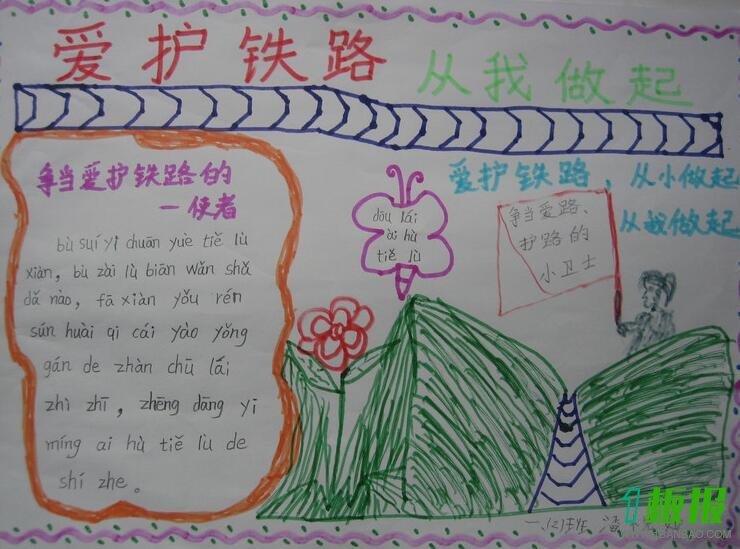 爱护铁路 从我做起
争当爱护铁路的
一使者
bù suí yì chuān yuè tiě lù
xiàn, bù zài lù biān wǎn shǎ
dǎ nào, fā xiàn yǒu rén
sún huài qi cái yào yǒng
gán de zhàn chū lái
zhì zhī, zhēng dāng yi
míng ai hù tiě lu de
shí zhe。
dōu lái
ài hù
tiě lù
爱护铁路，从小做起
从我做起
争当爱路、
护路的
小卫士
一、(2)班
板报